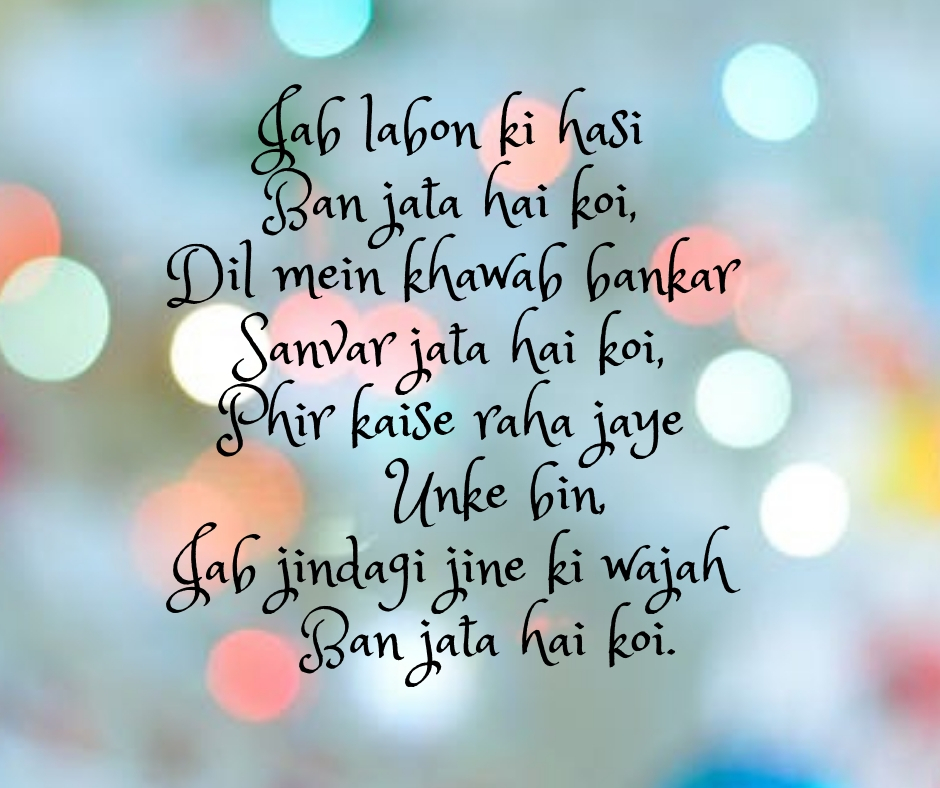 Jab labon ki hasi
Ban jata hai koi,
Dil mein khawab bankar
Sanvar jata hai koi,
Phir kaise raha jaye
Unke bin,
Jab jindagi jine ki wajah
Ban jata hai koi.